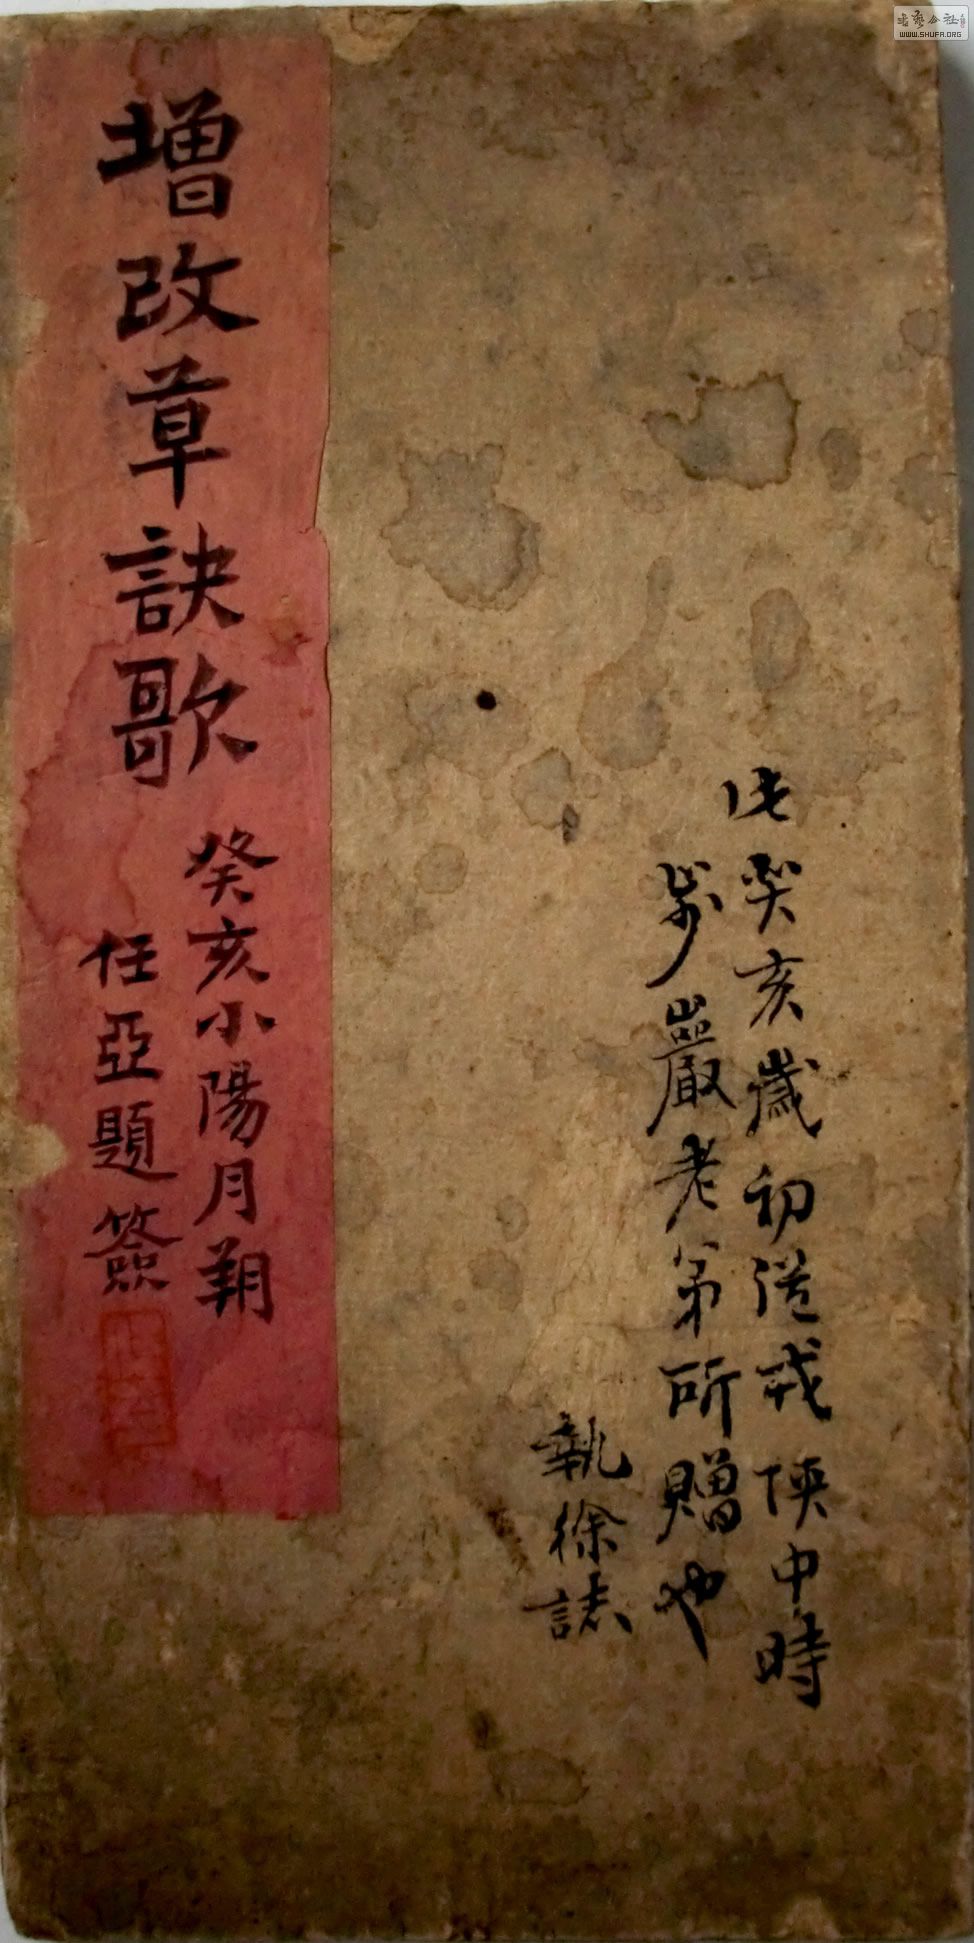 此癸亥歲初從戎陝中時
嚴老弟所贈也
執徐誌
增改草訣歌
癸亥小陽月朔
任亞題簽
書藝公社
WWW.SHUFA.ORG